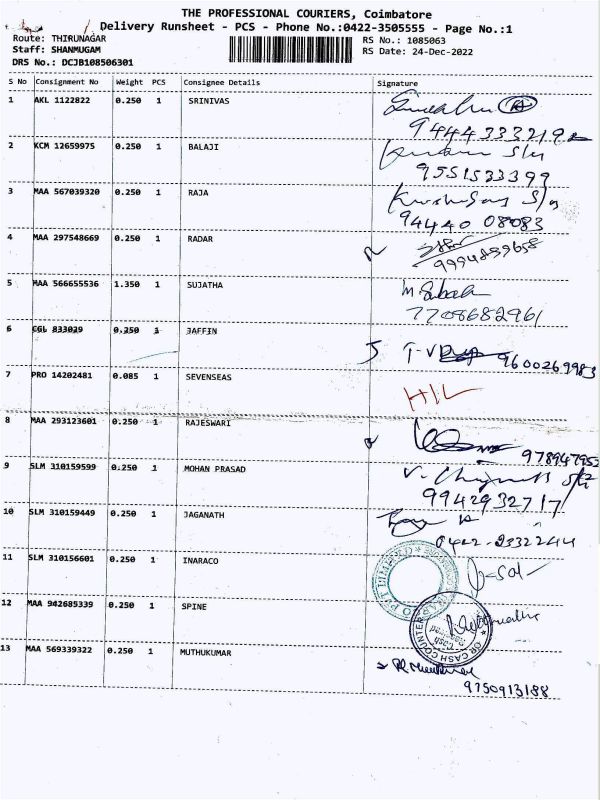 THE PROFESSIONAL COURIERS, Coimbatore
Delivery Runsheet - PCS - Phone No.:0422-3505555 - Page No.:1
Route: THIRUNAGAR
RS No.: 1085063
Staff: SHANMUGAM
RS Date: 24-Dec-2022
DRS No.: DCJB108506301
S No Consignment No Weight PCS Consignee Details Signature
1 AKL 1122822 0.250 1 SRINIVAS
9444333219
2 KCM 12659975 0.250 1 BALAJI
9551533399
3 MAA 567039320 0.250 1 RAJA
94440 08083
4 MAA 297548669 0.250 1 RADAR
9994899658
5 MAA 566655536 1.350 1 SUJATHA
7708682961
6 CGL 833029 0.250 1 JAFFIN
9600269983
7 PRO 14202481 0.085 1 SEVENSEAS
8 MAA 293123601 0.250 1 RAJESWARI
978947952
9 SLM 310159599 0.250 1 MOHAN PRASAD
9942932717
10 SLM 310159449 0.250 1 JAGANATH
0422-2332244
11 SLM 310156601 0.250 1 INARACO
12 MAA 942685339 0.250 1 SPINE
CASH COUNTER
13 MAA 569339322 0.250 1 MUTHUKUMAR
9750913188